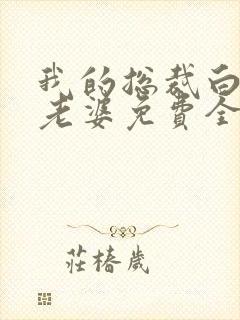 我的总裁白
老婆免费全
莊椿歲